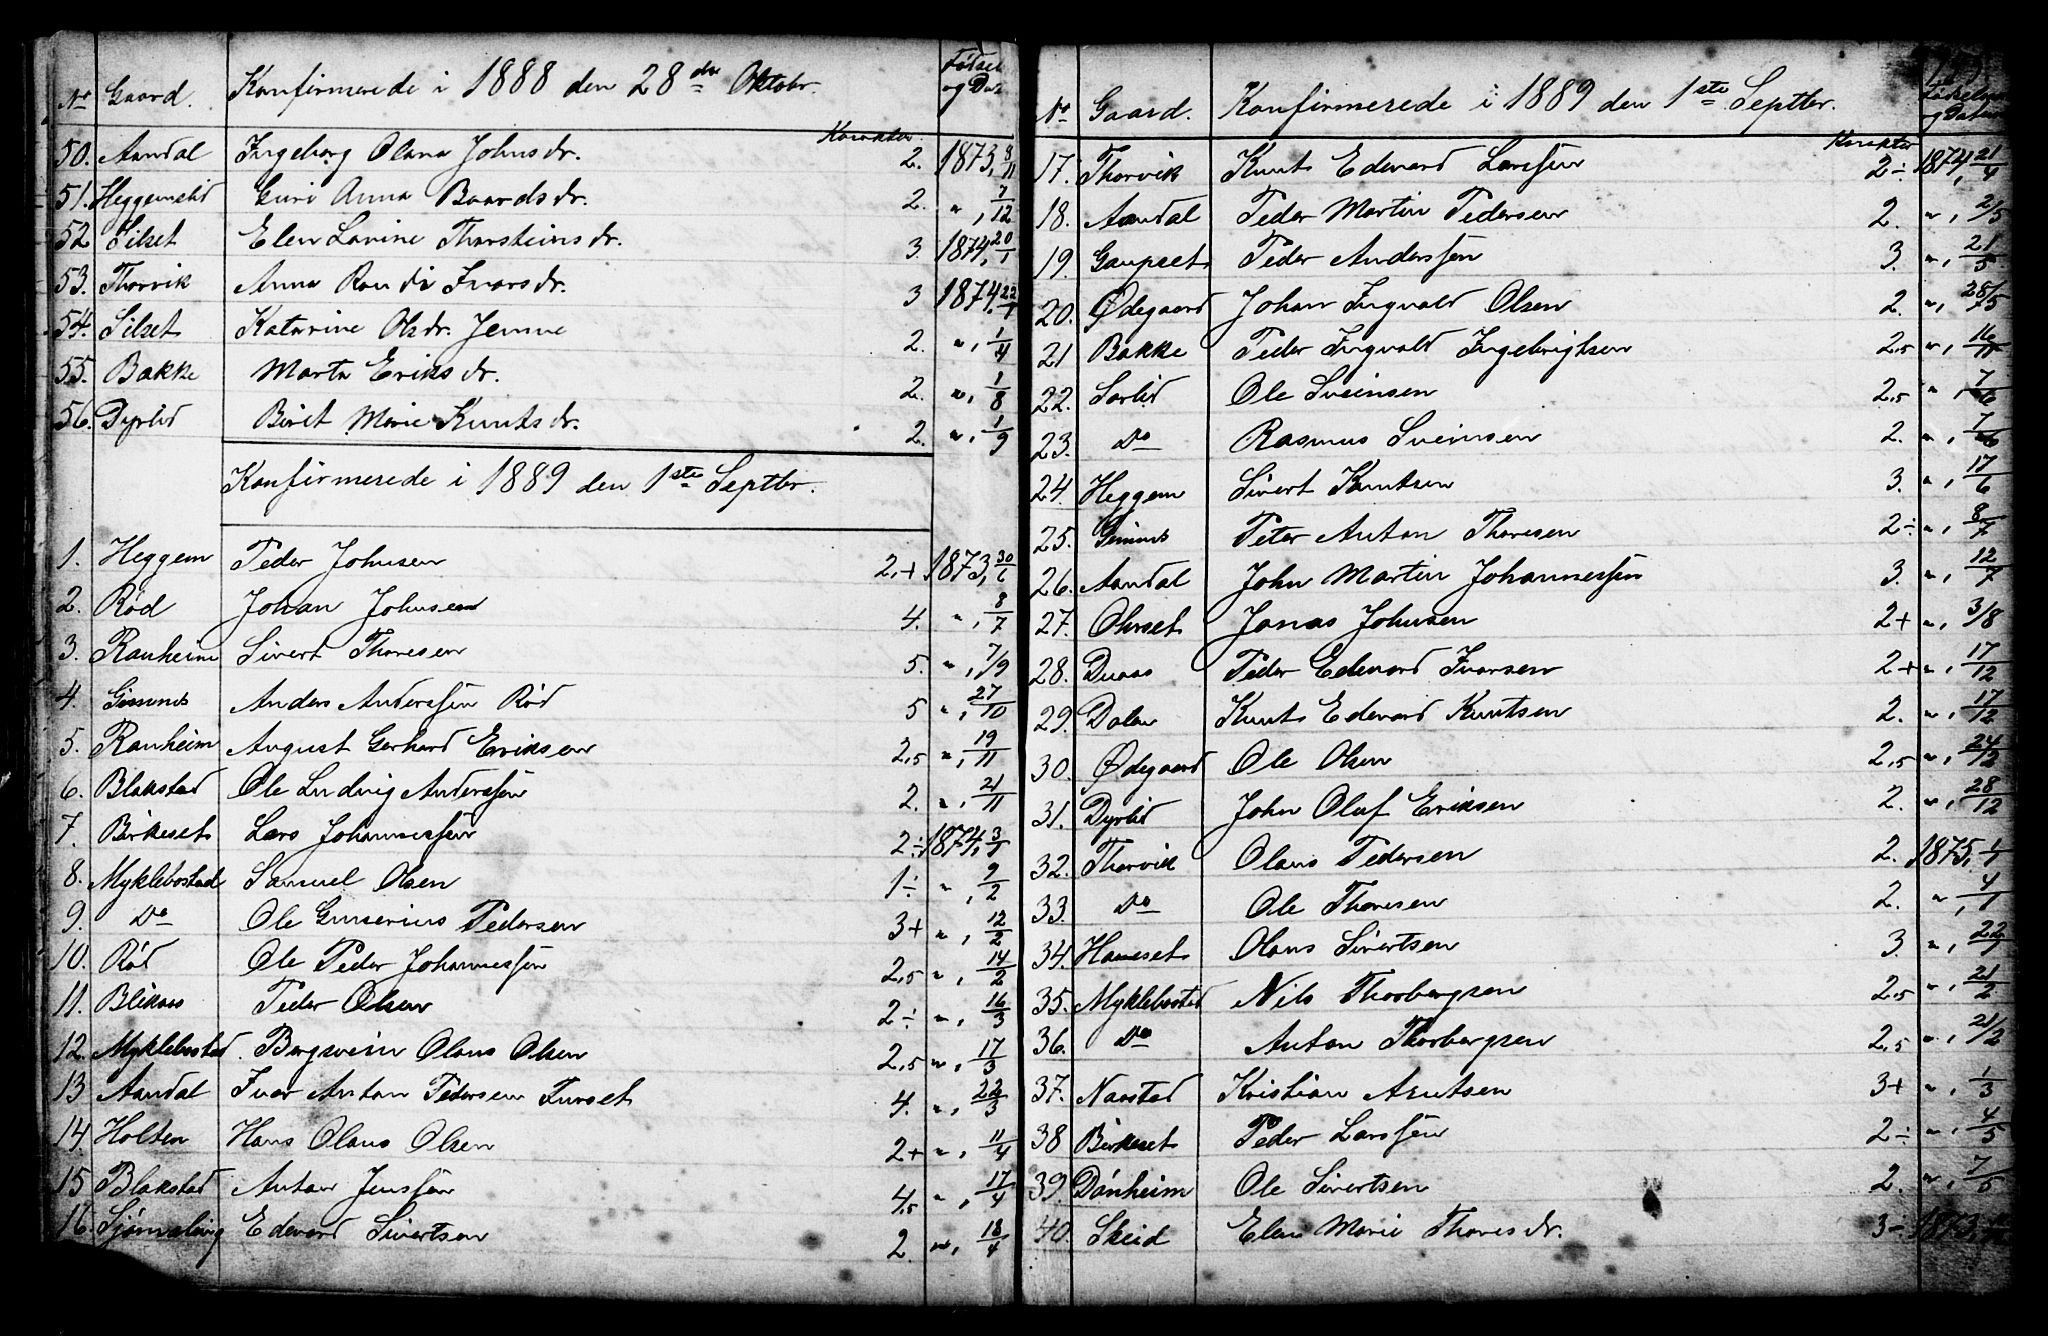 No Gaard. Konfirmerede i 1888 den 28de Oktobr. Fødsel og Dat
Karakter
50. Aandal Ingeborg Olana Johnsdr. 2. 1873, 8/11
51. Heggemslid Guri Anna Baardsdr. 2. ", 7/12
52 Silset Elen Lovine Thorsteinsdr. 3. 1874, 20/1
53. Thorvik Anna Randi Ivarsdr. 3 1874, 22/1
54. Silset Katarine Olsdr. Jemne 2. ", 1/4
55. Bakke Marta Eriksdr. 2. ", 1/8
56. Dyrlid Beret Marie Knutsdr. 2. ", 1/9
Konfirmerede i 1889 den 1ste Septbr.
1. Heggem Peder Johnsen 2,+ 1873, 30/6
2. Rød Johan Johnsen 4. ", 8/7
3. Ranheim Sivert Thoresen 5. ", 7/9
4. Gimnes Anders Anderssen Rød 5 ", 27/10
5. Ranheim August Gerhard Eriksen 2,5 ", 19/11
6. Blakstad Ole Ludvig Anderssen 2. ", 21/11
7. Birkeset Lars Johannessen 2÷ 1874, 3/1
8. Myklebostad Samuel Olsen 1÷ ", 9/2
9. Do Ole Gunerius Pedersen 3+ ", 12/2
10. Rød Ole Peder Johannessen 2,5 ", 14/2
11. Blikaas Peder Olsen 2÷ ", 16/3
12. Myklebostad. Bergsvein Olaus Olsen 2,5 ", 17/3
13 Aandal Ivar Anton Pedersen Furset 4. ", 22/3
14. Holten Hans Olaus Olsen 2+ ", 11/4
15 Blakstad Anton Jenssen 4,5 ", 17/4
16. Edevard Sivertsen 2. ", 18/4
No Gaard. Konfirmerede i 1889 den 1ste Septbr. Fødselsaar og Datum
Karakter
17. Thorvik Knut Edevard Larssen 2÷ 1874, 21/4
18. Aandal Peder Martin Pedersen 2. ", 2/5
19. Gaupset Peder Anderssen 3. ", 21/5
20. Ødegaard Johan Ingvald Olsen 2. ", 28/5
21 Bakke Peder Ingvald Ingebrigtsen 2,5 ", 16/11
22. Sarlid Ole Sveinsen 2,5 ", 7/6
23. Do Rasmus Sveinsen 2. ", 7/6
24. Heggem Sivert Knutsen 3. ", 17/6
25. Gimnes Peter Anton Thoresen 2÷ ", 8/7
26. Aandal John Martin Johannessen 3. ", 12/7
27. Ohrset Jonas Johnsen 2+ ", 3/8
28. Duaas Peder Edevard Ivarsen 2+ ", 17/12
29. Dalen Knut Edevard Knutsen 2. ", 17/12
30. Ødegaard Ole Olsen 2,5 ",
31. Dyrlid John Oluf Eriksen 2. ", 28/12
32. Thorvik Olaus Pedersen 2. 1875, 1/1
33. Do Ole Thoresen 2. ", 4/1
34. Haneset Olaus Sivertsen 3. ", 22/1
35. Myklebostad Nils Thorbergsen 2,5 ", 21/2
36. Do Anton Thorbergsen 2,5 ", 21/2
37. Narstad Kristian Arntsen 3+ ", 1/3
38 Birkeset Peder Larssen 2÷ ", 4/5
39 Dønheim Ole Sivertsen 2. ", 7/5
40. Skeid Elen Marie Thoresdr. 3- 1873,